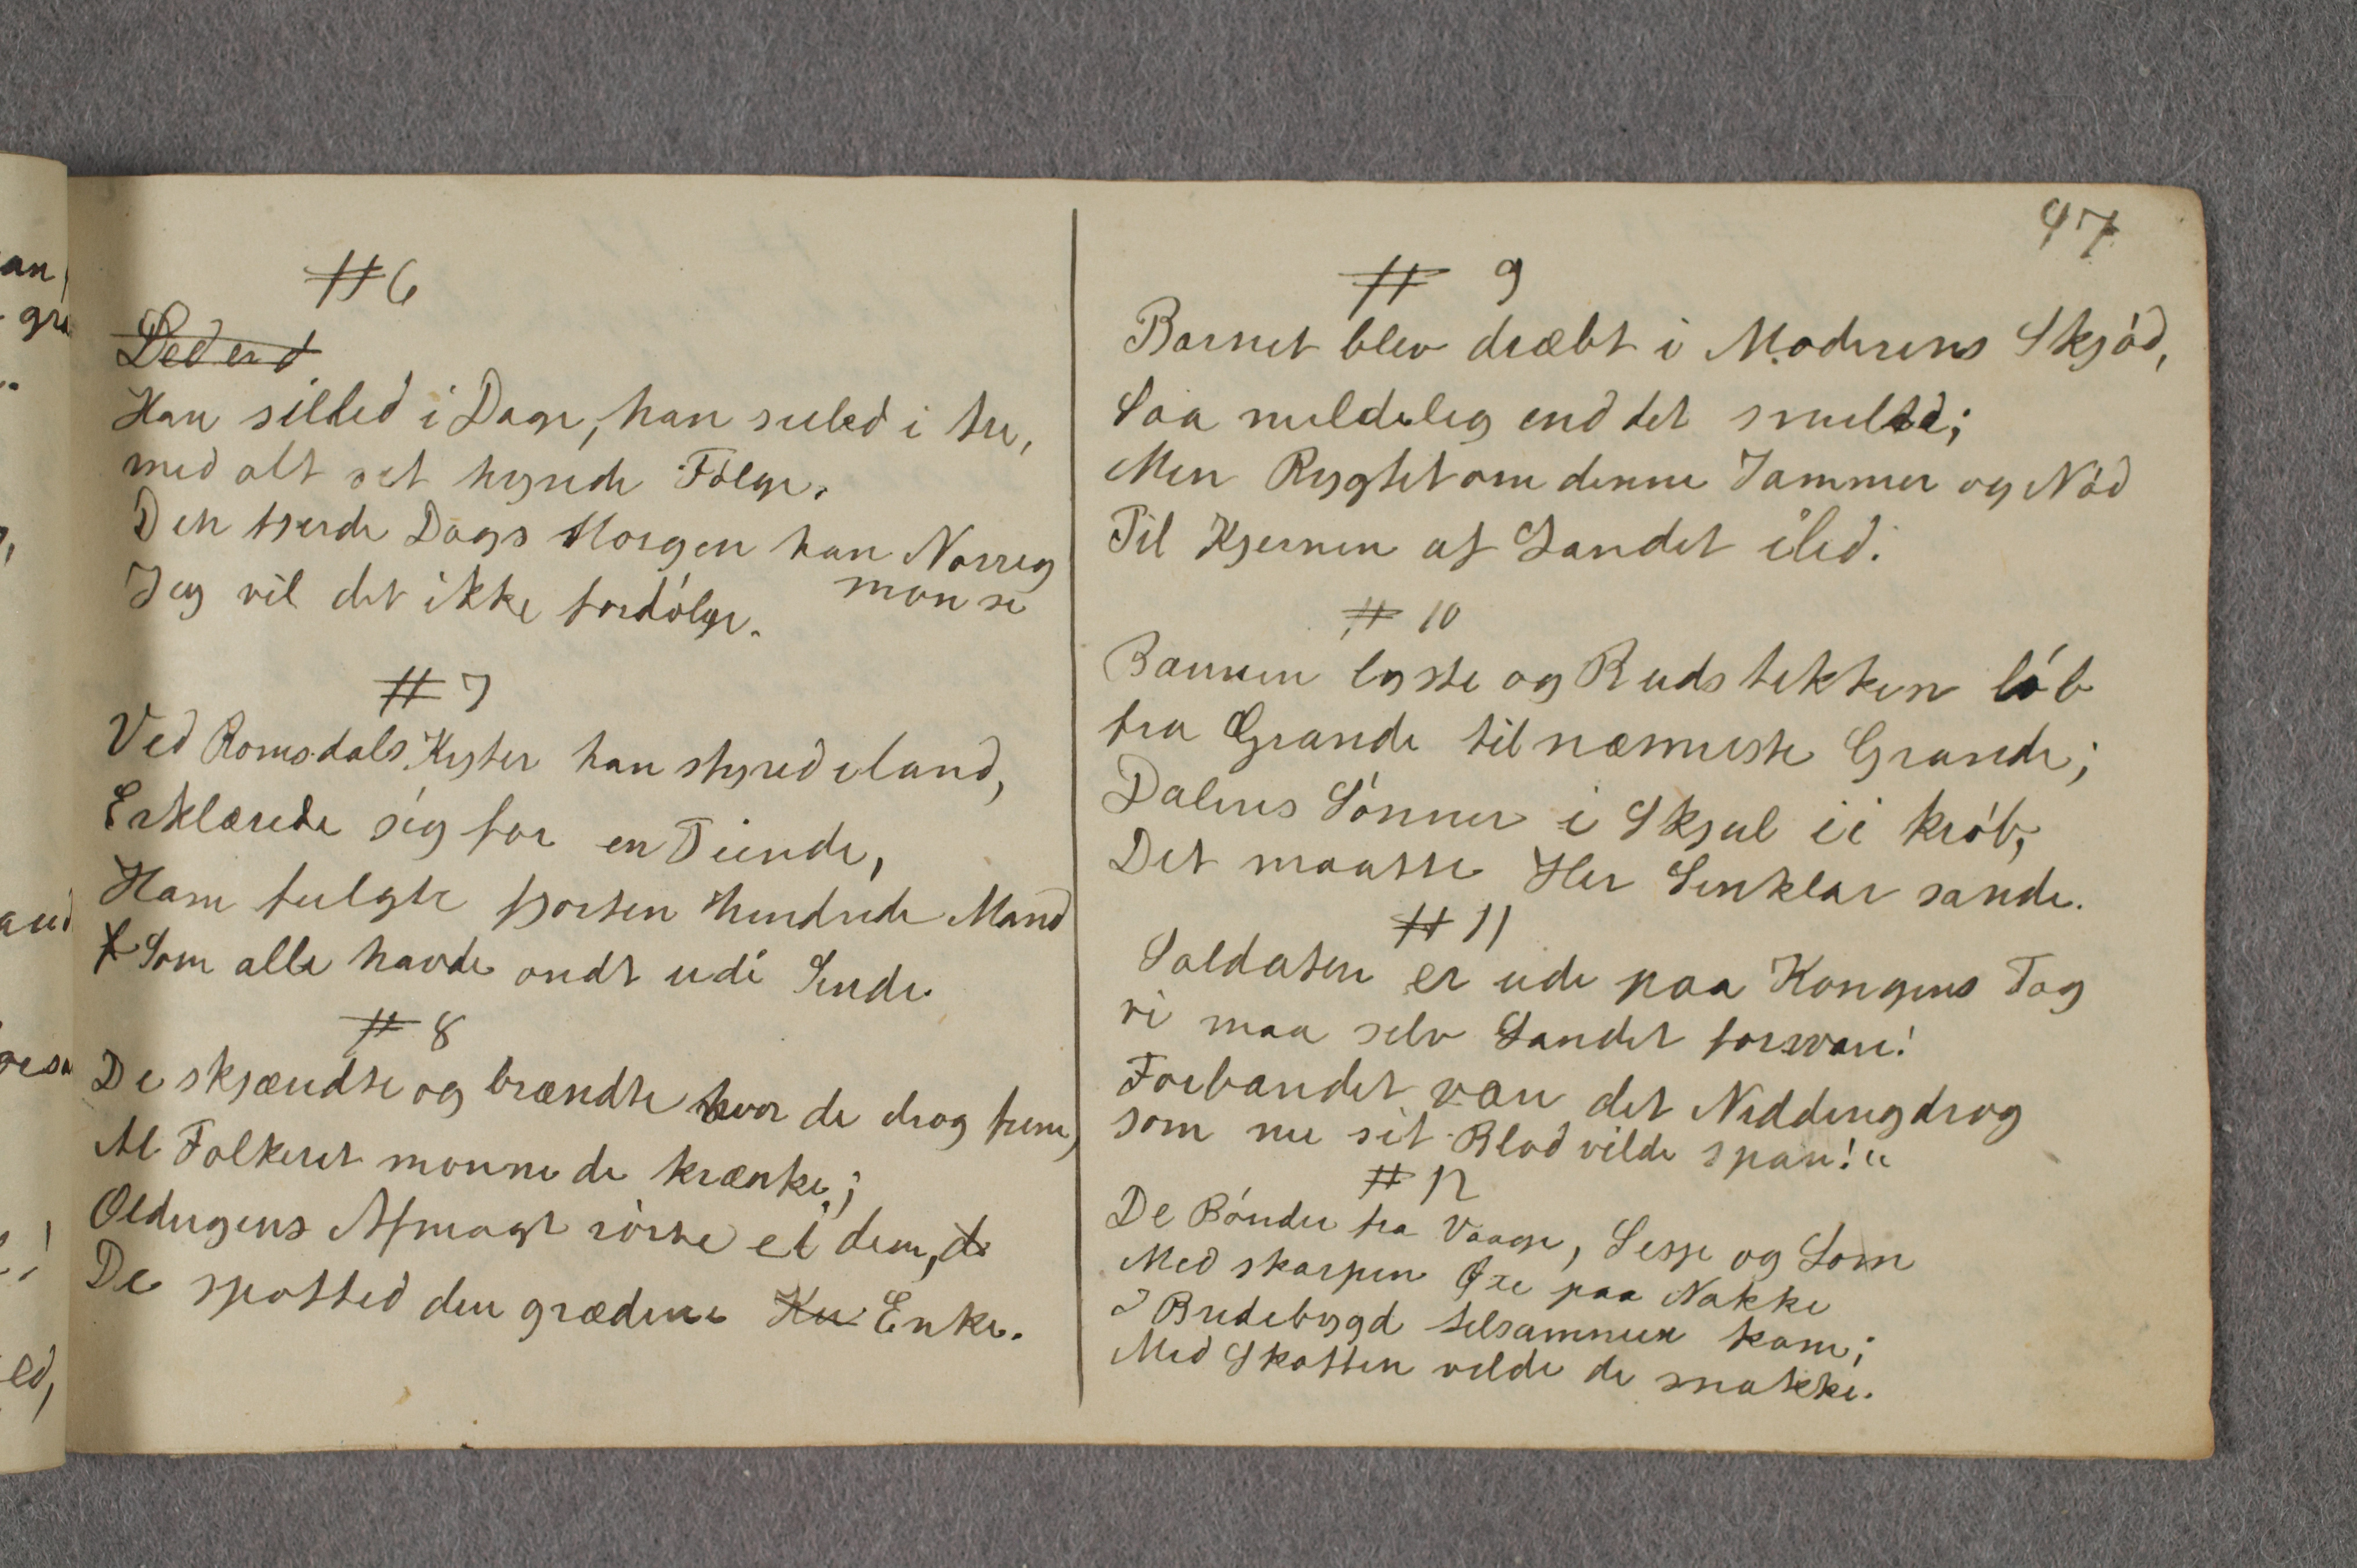 47
# 6
Ded er d
Han silled i Dage, han siiled i tre,
med alt sit hyrede Følge.
Den fjerde Dags Morgen han Norreg
mon se
Jeg vil det ikke fordølge.
# 7
Ved Romsdals Kyster han styred iland,
Erklærede sig for en Fiende,
Ham fulgte fjorten hundrede Mand
Som alle havde ondt udi Sinde.
# 8
De skjændte og brændte hvor de drog frem,
Al Folkeret monne de krænke;
Oldingens Afmagt rørte ei dem, d
De spotted den grædene Ku Enke.
# 9
Barnet blev dræbt i Moderens Skjød,
Saa mildelig end det smilte;
Men Rygtet om denne Jammer og Nød
Til Kjernen af Landet iled.
# 10
Baunen lyste og Budstikken løb
fra Grande til næmeste Grande;
Dalens Sønner i Skjul ei krøb,
Det maatte Her Sinklar sande.
# 11
Soldaten er ude paa Kongens Tog
vi maa selv Landet forsvare!
Forbandet være det Niddingdrog
som nu sit Blod vilde spare!"
# 12
De Bønder fra Vaage, Lesje og Lom
Med skarpen Øxe paa Nakke
I Bredebygd tilsammen kom;
Med Skotten vilde de snakke.
an,
gru
aud
ed,